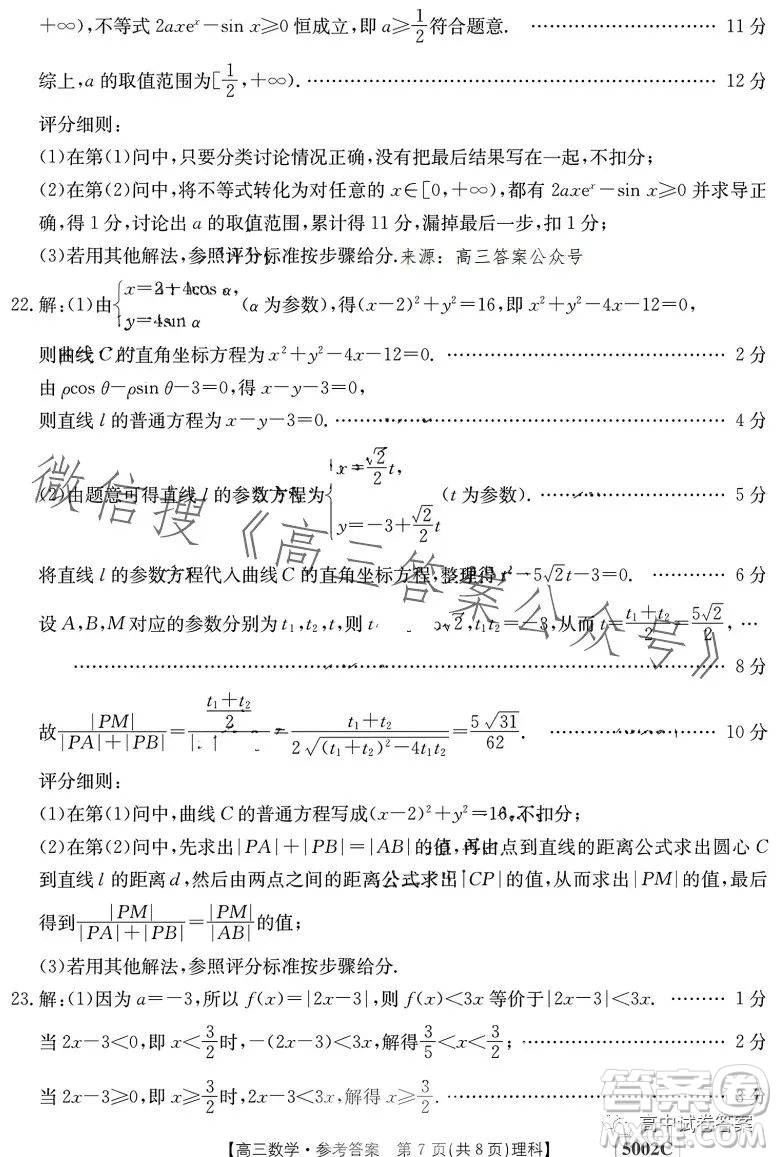 +∞),不等式 2axeˣ−sin x⩾0 恒成立,即 a⩾1/2 符合题意. ………… 11 分
综上,a 的取值范围为[1/2,+∞). ………… 12 分
评分细则:
(1)在第(1)问中,只要分类讨论情况正确,没有把最后结果写在一起,不扣分;
(2)在第(2)问中,将不等式转化为对任意的 x∈[0,+∞),都有 2axeˣ−sin x⩾0 并求导正
确,得 1 分,讨论出 a 的取值范围,累计得 11 分,漏掉最后一步,扣 1 分;
(3)若用其他解法,参照评分标准按步骤给分.来源:高三答案公众号
22.解:(1)由{x=2+4cos α, y=4sin α (α 为参数),得(x−2)²+y²=16,即 x²+y²−4x−12=0,
则曲线 C 的直角坐标方程为 x²+y²−4x−12=0. ………… 2 分
由 ρcos θ−ρsin θ−3=0,得 x−y−3=0,
则直线 l 的普通方程为 x−y−3=0. ………… 4 分
(2)由题意可得直线 l 的参数方程为{x=√2/2 t, y=−3+√2/2 t (t 为参数). ………… 5 分
将直线 l 的参数方程代入曲线 C 的直角坐标方程,整理得 t²−5√2t−3=0. ………… 6 分
设 A,B,M 对应的参数分别为 t₁,t₂,t,则 t √2,t₁t₂=−3,从而 t=(t₁+t₂)/2=5√2/2, …
………… 8 分
故|PM|/(|PA|+|PB|)=((t₁+t₂)/2)/ =(t₁+t₂)/(2√((t₁+t₂)²−4t₁t₂))=5√31/62. ………… 10 分
评分细则:
(1)在第(1)问中,曲线 C 的普通方程写成(x−2)²+y²=16,不扣分;
(2)在第(2)问中,先求出|PA|+|PB|=|AB|的值,再由点到直线的距离公式求出圆心 C
到直线 l 的距离 d,然后由两点之间的距离公式求出|CP|的值,从而求出|PM|的值,最后
得到|PM|/(|PA|+|PB|)=|PM|/|AB|的值;
(3)若用其他解法,参照评分标准按步骤给分.
23.解:(1)因为 a=−3,所以 f(x)=|2x−3|,则 f(x)<3x 等价于|2x−3|<3x. ……… 1 分
当 2x−3<0,即 x<3/2时,−(2x−3)<3x,解得3/5<x<3/2; ………… 2 分
当 2x−3⩾0,即 x⩾3/2时,2x−3<3x,解得 x⩾3/2. ………… 3 分
【高三数学·参考答案 第 7 页(共 8 页)理科】 5002C
微信搜《高三答案公众号》
答案圈
高中试卷答案